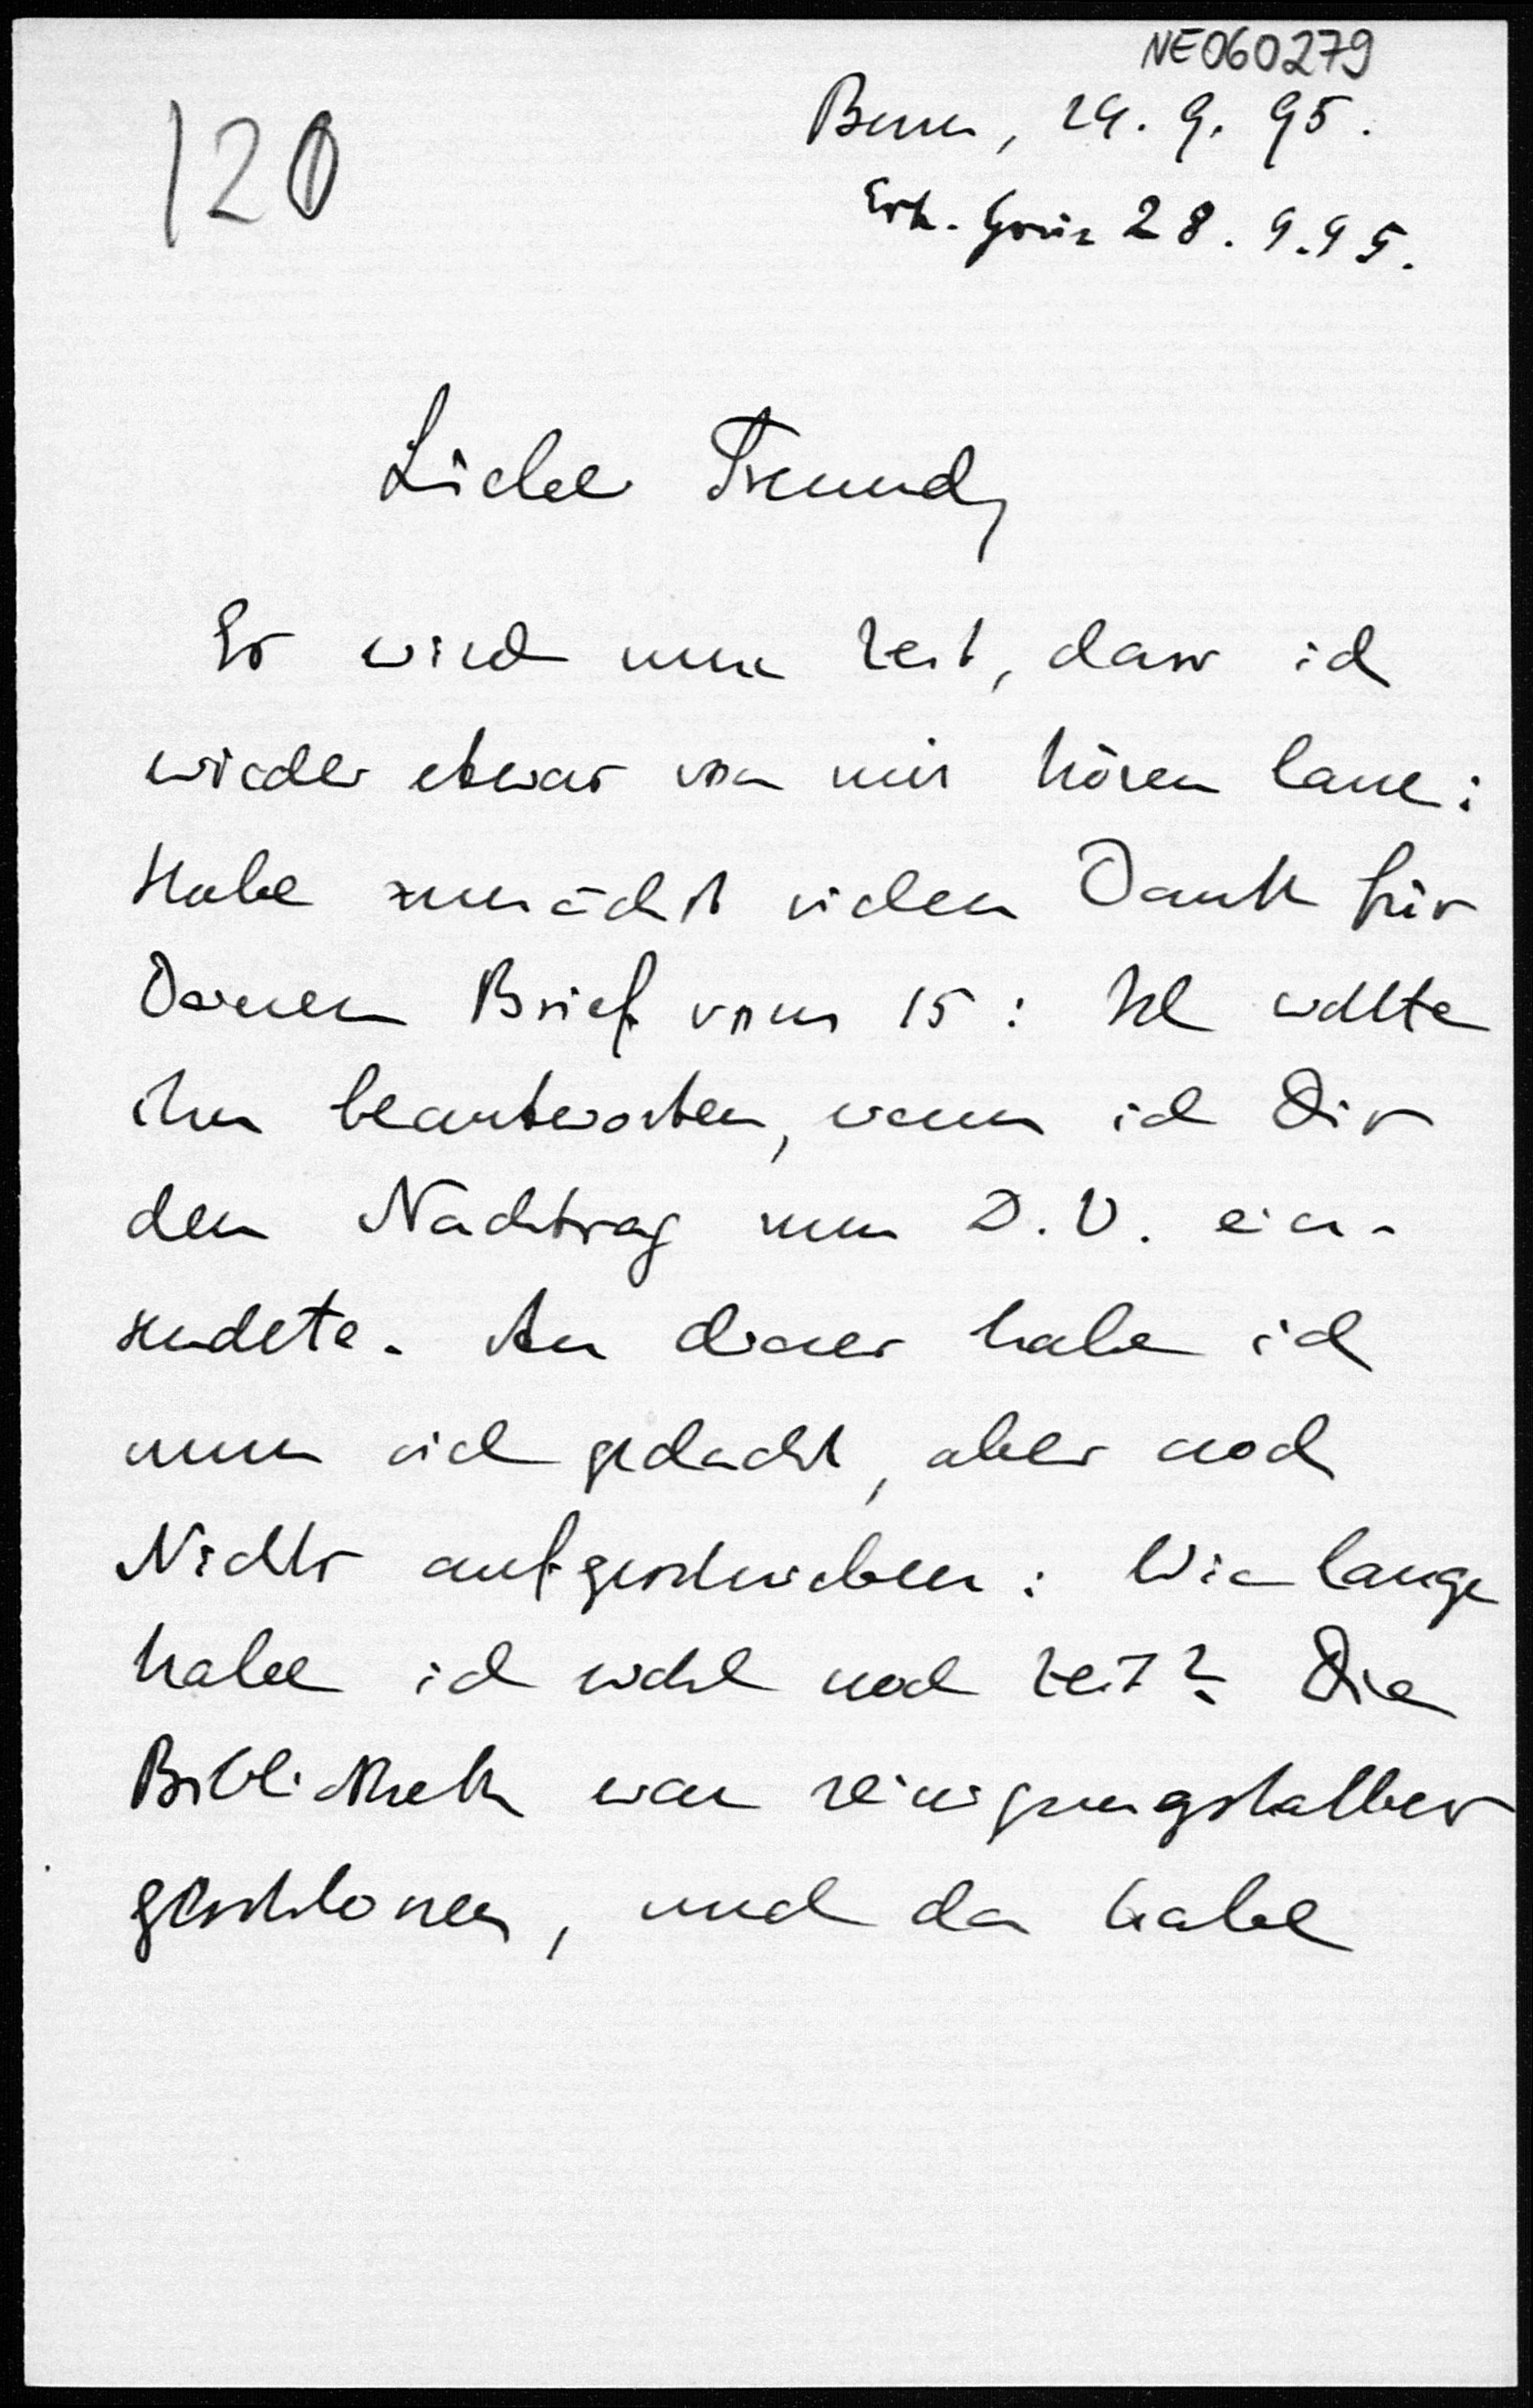 NE060279
120
Bern, 24. 9. 95.
Erh. Graz 28. 9. 95.
Lieber Freund,
Es wird nun Zeit, dass ich
wieder etwas von mir hören lasse:
Habe zunächst vielen Dank für
Deinen Brief vom 15: Ich wollte
ihn beantworten, wenn ich Dir
den Nachtrag zum D. V. ein-
sendete. An diesen habe ich
nun viel gedacht, aber noch
Nichts aufgeschrieben: Wie lange
habe ich wohl noch Zeit? Die
Bibliothek war reinigungshalber
geschlossen, und da habe